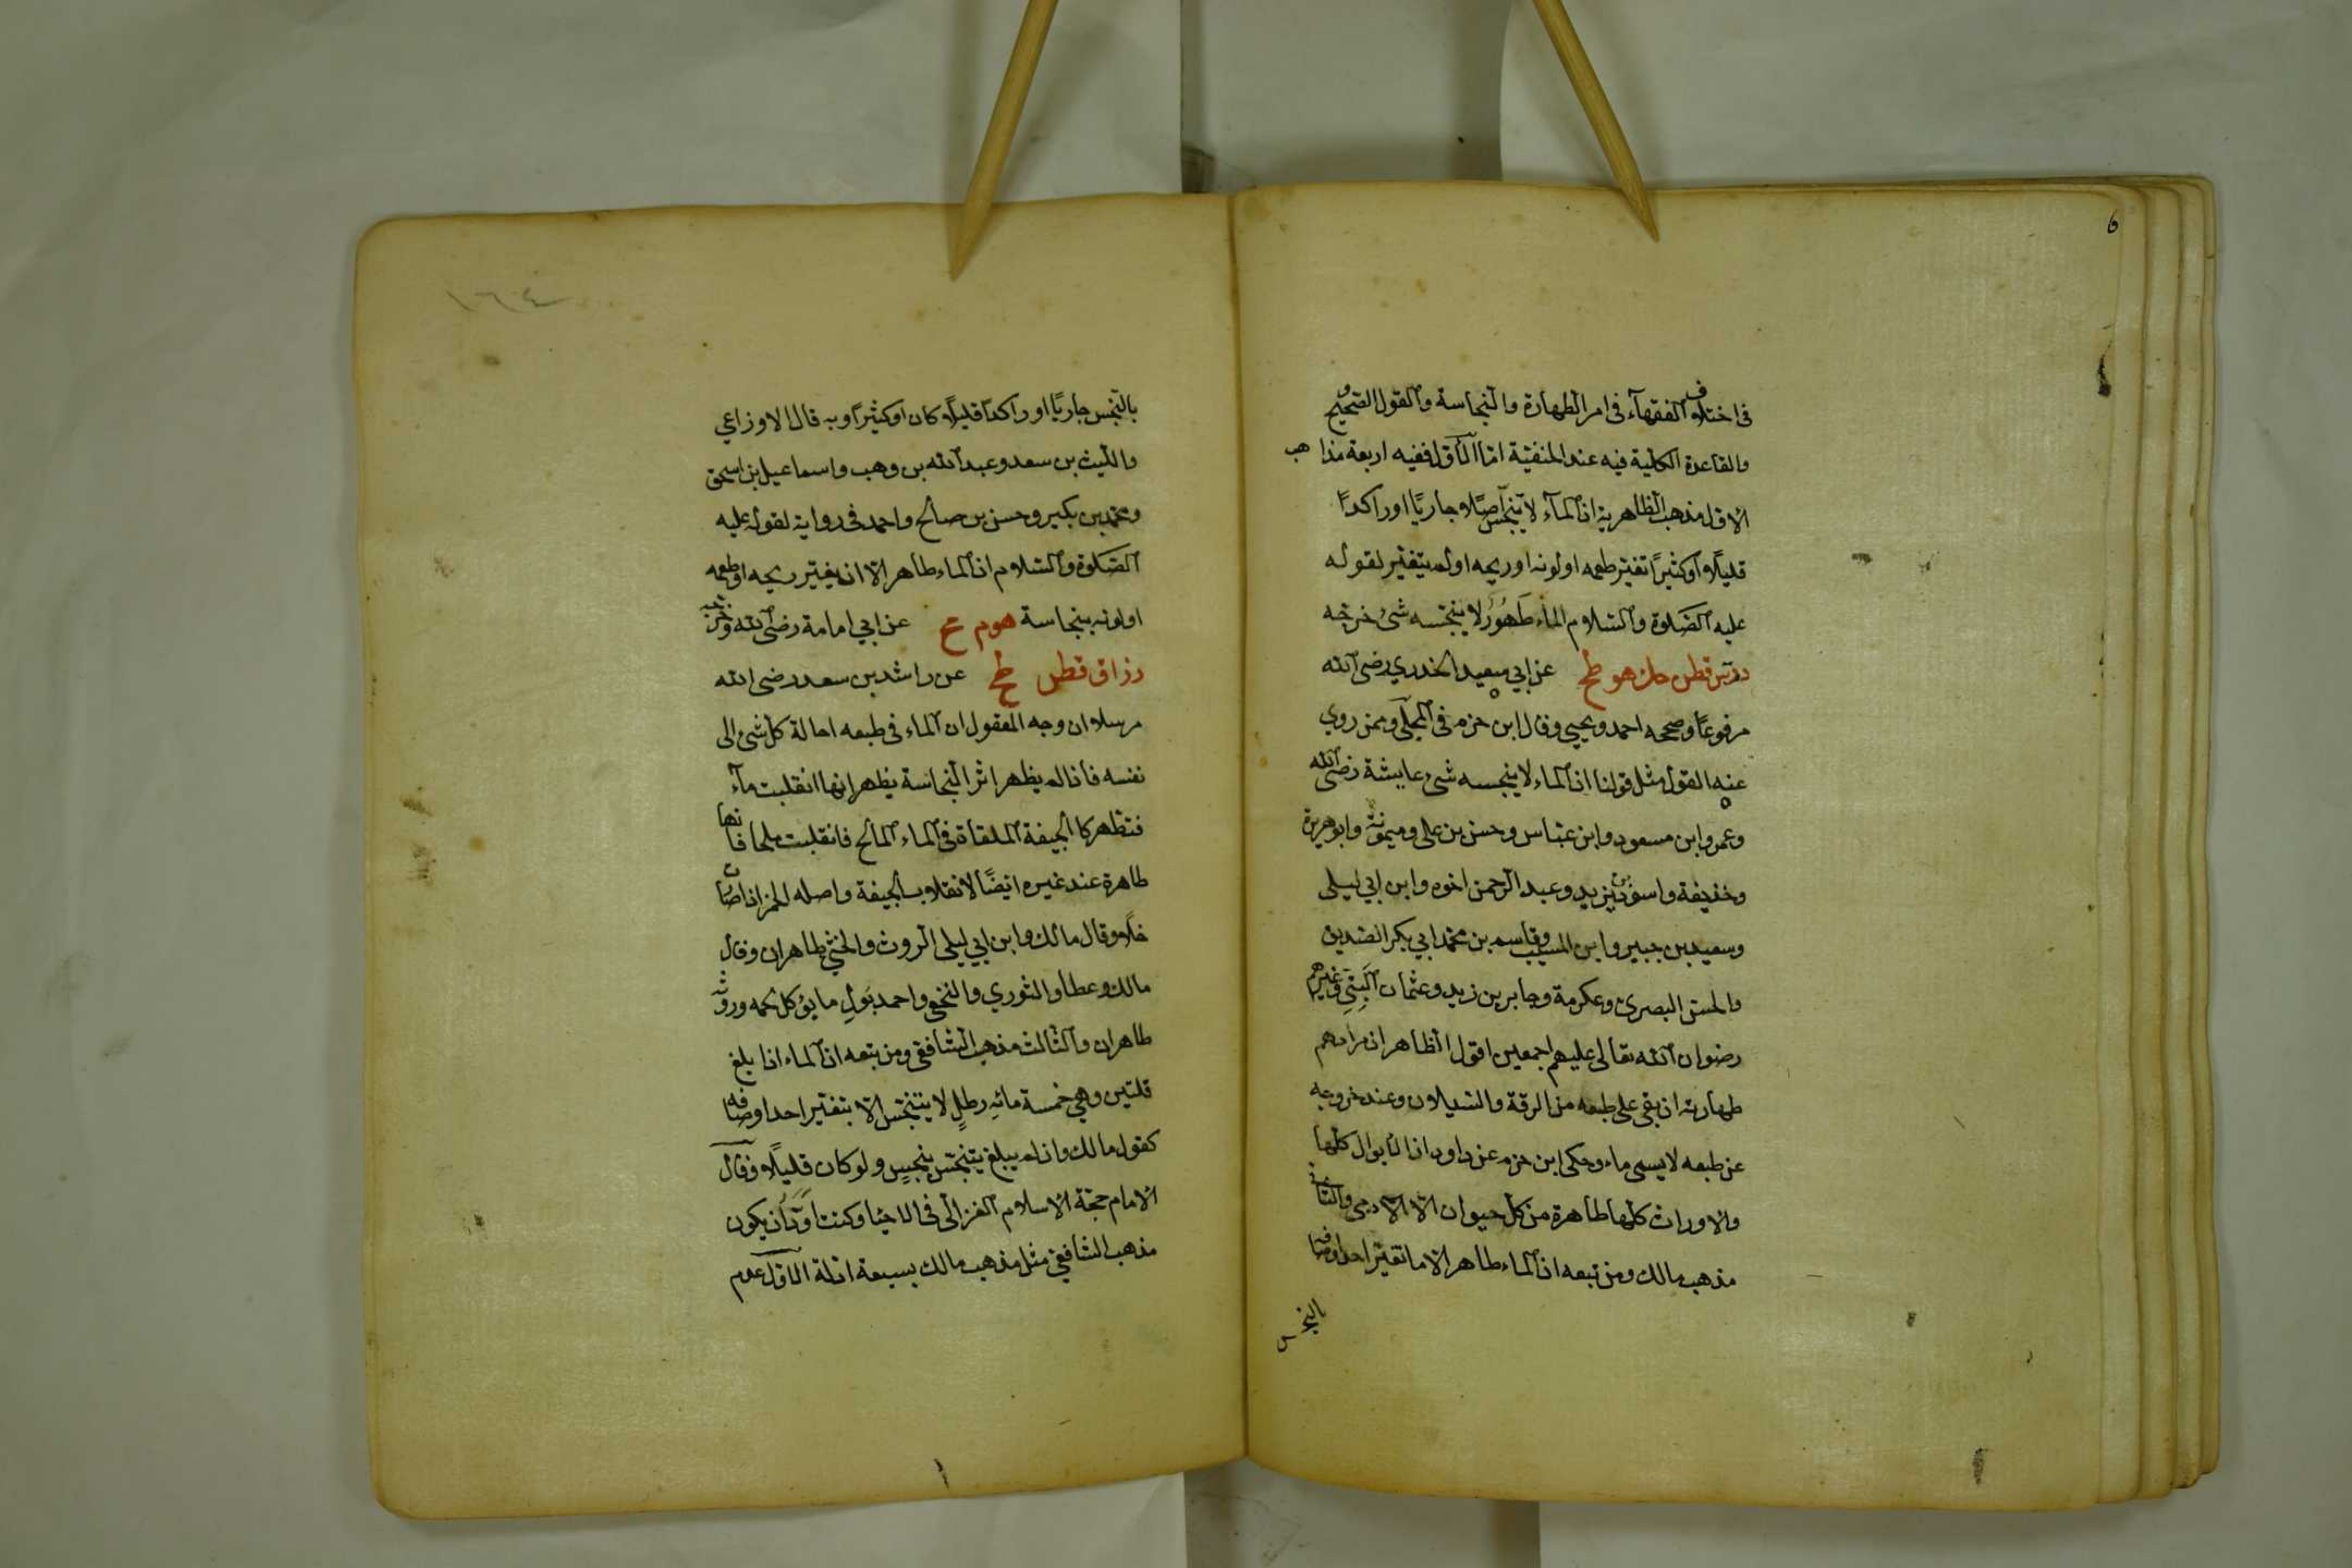 6
في اختلاف الفقهآء في امر الطهارة والنجاسة والقول الصحيح
والقاعدة الكلية فيه عند الحنفية اما الأول ففيه اربعة مذاهب
الاول مذهب الظاهرية ان المآء لا يتنجس اصلًا وجاريًا او راكدًا
قليلًا او كثيرًا تغير طعمه او لونه او ريحه او لم يتغير لقوله
عليه الصلوة والسلام الماء طَهُورٌ لا ينجسه شئ خرجه
دت س قطن حك هو طح عن ابي سعيد الخدري رضى الله
مرفوعًا وصححه احمد ويحيى وقال ابن حزم في المحلى وممن روي
عنه القول مثل قولنا ان الماء لا ينجسه شئ عايشة رضى الله
وعمر وابن مسعود وابن عباس وحسن بن على وميمونة وابوهريرة
وحذيفة واسود بن يزيد وعبد الرحمن اخوه وابن ابي ليلى
وسعيد بن جبير وابن المسيب وقاسم بن محمد ابي بكر الصديق
والحسن البصرى وعكرمة وجابر بن زيد وعثمان البَتِّي وغيرهم
رضوان الله تعالى عليهم اجمعين اقول الظاهر ان مرادهم
طهارته ان بقي على طبعه من الرقة والسيلان وعند خروجه
عن طبعه لا يسمى ماء وحكى ابن حزم عن داود ان الابوال كلها
والاوراث كلها طاهرة من كل حيوان الا الآدمى والثاني
مذهب مالك ومن تبعه ان الماء طاهر الا ما تغير احد اوصافه
بالنجس
١٦٤
بالنجس جاريًا او راكدًا قليلًا كان او كثيرًا وبه قال الاوزاعي
والليث بن سعد وعبد الله بن وهب واسماعيل بن اسحق
ومحمد بن بكير وحسن بن صالح واحمد في رواية لقوله عليه
الصلوة والسلام ان الماء طاهر الا ان يغير ريحه او طعمه
او لونه بنجاسة هو م ع عن ابي امامة رضى الله وخرجه
رزاق قطن طح عن راشد بن سعد رضى الله
مرسلا ان وجه المعقول ان الماء في طبعه احالة كل شئ الى
نفسه فاذا لم يظهر اثر النجاسة يظهر انها انقلبت مآء
فتطهر كالجيفة الملقاة في الماء المالح فانقلبت ملحا فانها
طاهرة عند غيره ايضًا لانقلاب الجيفة واصله الخمر اذا صارت
خلًا وقال مالك وابن ابي ليلى الروث والخثي طاهران وقال
مالك وعطا والثوري والنخعي واحمد بَولِ ما يؤكل لحمه وروثه
طاهران والثالث مذهب الشافعى ومن تبعه ان الماء اذا بلغ
قلتين وهي خمسة مائةِ رطلٍ لا يتنجس الا بتغير احد اوصافه
كقول مالك واذا لم يبلغ يتنجس بنجسٍ ولو كان قليلًا وقال
الامام حجة الاسلام الغزالى في الاحيا وكنت اَوَدُّ ان يكون
مذهب الشافعي مثل مذهب مالك بسبعة ادلة الاول عدم